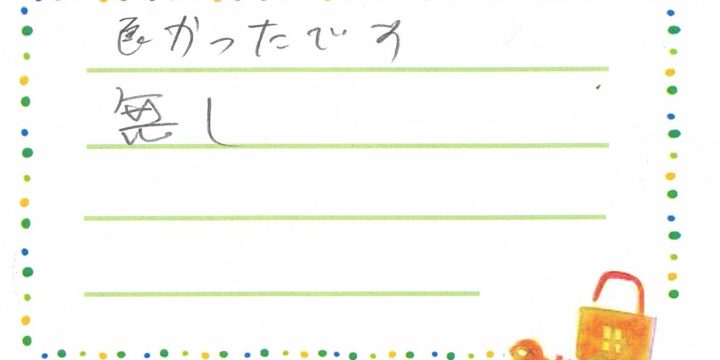 良かったです
無し